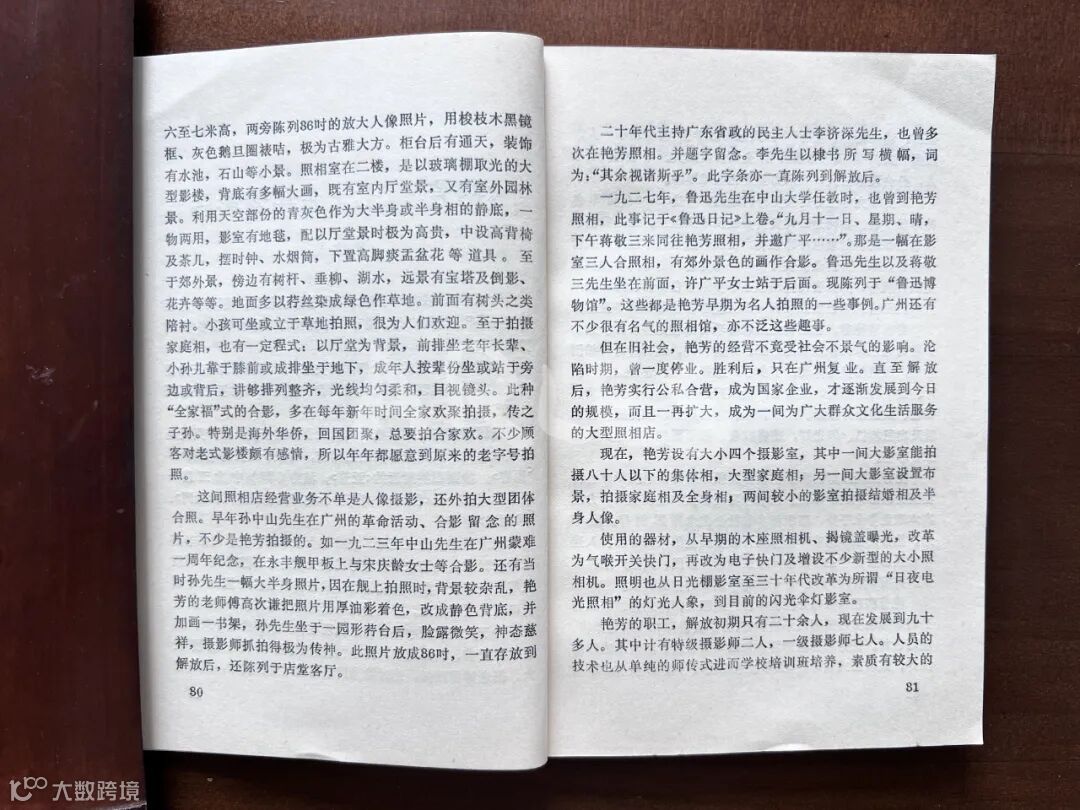 六至七米高，两旁陈列86吋的放大人像照片，用梭枝木黑镜
框、灰色鹅旦圈裱咭，极为古雅大方。柜台后有通天，装饰
有水池，石山等小景。照相室在二楼，是以玻璃棚取光的大
型影楼，背底有多幅大画，既有室内厅堂景，又有室外园林
景。利用天空部份的青灰色作为大半身或半身相的静底，一
物两用，影室有地毯，配以厅堂景时极为高贵，中设高背椅
及茶几，摆时钟、水烟筒，下置高脚痰盂盆花等道具。至
于郊外景，傍边有树杆、垂柳、湖水，远景有宝塔及倒影、
花卉等等。地面多以荮丝染成绿色作草地。前面有树头之类
陪衬。小孩可坐或立于草地拍照，很为人们欢迎。至于拍摄
家庭相，也有一定程式：以厅堂为背景，前排坐老年长辈、
小孙儿靠于膝前或成排坐于地下，成年人按辈份坐或站于旁
边或背后，讲够排列整齐，光线均匀柔和，目视镜头。此种
“全家福”式的合影，多在每年新年时间全家欢聚拍摄，传之
子孙。特别是海外华侨，回国团聚，总要拍合家欢。不少顾
客对老式影楼颇有感情，所以年年都愿意到原来的老字号拍
照。
这间照相店经营业务不单是人像摄影，还外拍大型团体
合照。早年孙中山先生在广州的革命活动、合影留念的照
片，不少是艳芳拍摄的。如一九二三年中山先生在广州蒙难
一周年纪念，在永丰舰甲板上与宋庆龄女士等合影。还有当
时孙先生一幅大半身照片，因在舰上拍照时，背景较杂乱，艳
芳的老师傅高次谦把照片用厚油彩着色，改成静色背底，并
加画一书架，孙先生坐于一园形荮台后，脸露微笑，神态慈
祥，摄影师抓拍得极为传神。此照片放成86吋，一直存放到
解放后，还陈列于店堂客厅。
80
二十年代主持广东省政的民主人士李济深先生，也曾多
次在艳芳照相。并题字留念。李先生以隶书所写横幅，词
为：“其余视诸斯乎”。此字条亦一直陈列到解放后。
一九二七年，鲁迅先生在中山大学任教时，也曾到艳芳
照相，此事记于《鲁迅日记》上卷。“九月十一日、星期、晴，
下午蒋敬三来同往艳芳照相，并邀广平……”。那是一幅在影
室三人合照相，有郊外景色的画作合影。鲁迅先生以及蒋敬
三先生坐在前面，许广平女士站于后面。现陈列于“鲁迅博
物馆”。这些都是艳芳早期为名人拍照的一些事例。广州还有
不少很有名气的照相馆，亦不泛这些趣事。
但在旧社会，艳芳的经营不竟受社会不景气的影响。沦
陷时期，曾一度停业。胜利后，只在广州复业。直至解放
后，艳芳实行公私合营，成为国家企业，才逐渐发展到今日
的规模，而且一再扩大，成为一间为广大群众文化生活服务
的大型照相店。
现在，艳芳设有大小四个摄影室，其中一间大影室能拍
摄八十人以下的集体相，大型家庭相；另一间大影室设置布
景，拍摄家庭相及全身相；两间较小的影室拍摄结婚相及半
身人像。
使用的器材，从早期的木座照相机、揭镜盖曝光，改革
为气喉开关快门，再改为电子快门及增设不少新型的大小照
相机。照明也从日光棚影室至三十年代改革为所谓“日夜电
光照相”的灯光人象，到目前的闪光伞灯影室。
艳芳的职工，解放初期只有二十余人，现在发展到九十
多人。其中计有特级摄影师二人，一级摄影师七人。人员的
技术也从单纯的师传式进而学校培训班培养，素质有较大的
81
大数跨境